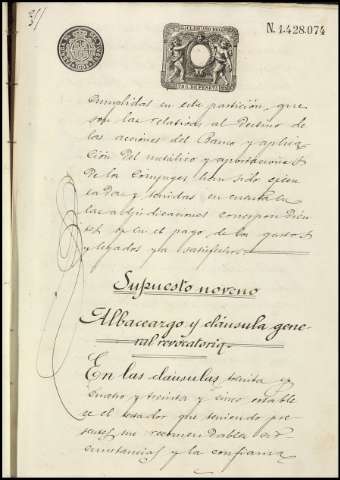 N. 1.428.074
cumplidas en esta partición, que
son las relativas al destino de
las acciones del Banco y aplica-
ción del metálico y aportaciones
de los conyuges han sido ejecu
tadas y tenidas en cuenta en
las adjudicaciones correspondien
tes y en el pago de los gastos
y legados ya satisfechos.
Supuesto noveno
Albaceazgo y cláusula gene-
ral revocatoria.
En las cláusulas treinta y
cuatro y treinta y cinco estable
ce el testador que teniendo pre-
sentes las recomendables cir-
cunstancias y la confianza